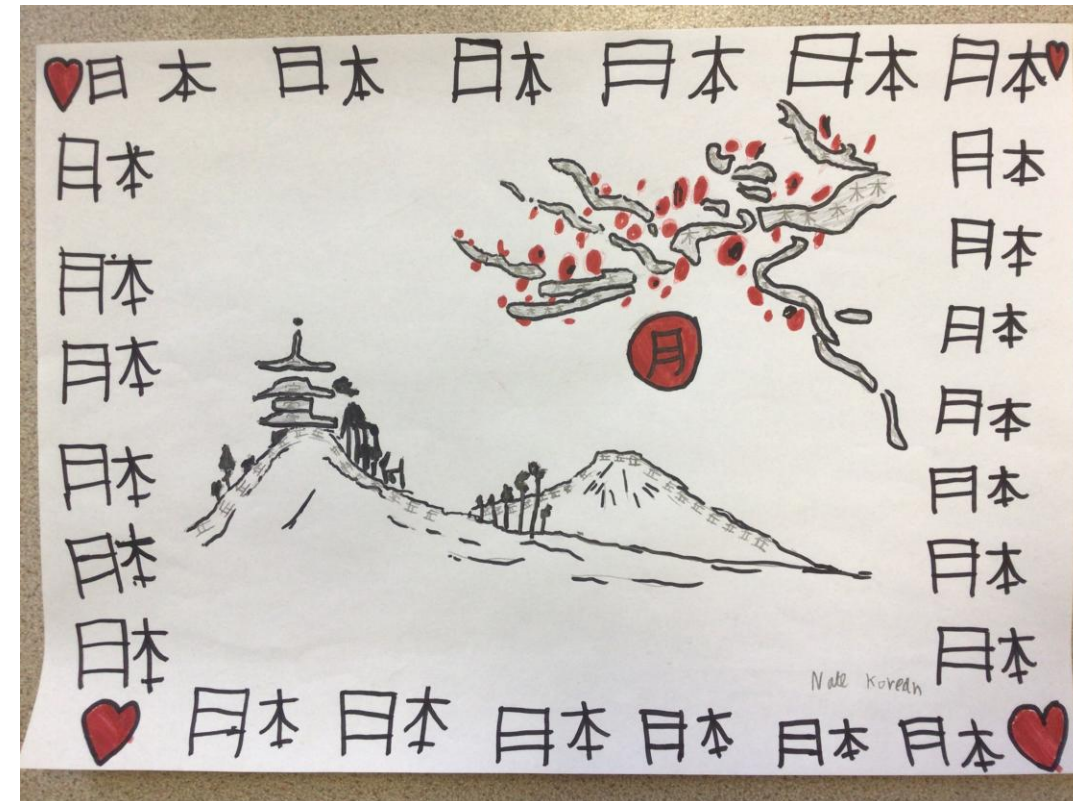 日本 日本 日本 日本 日本 日本
日本
日本
日本
日本
日本
日本
日本
日本
日本
日本
日本
日本
日本
木木
木木木
月
Nate Korean
日本 日本 日本 日本 日本 日本